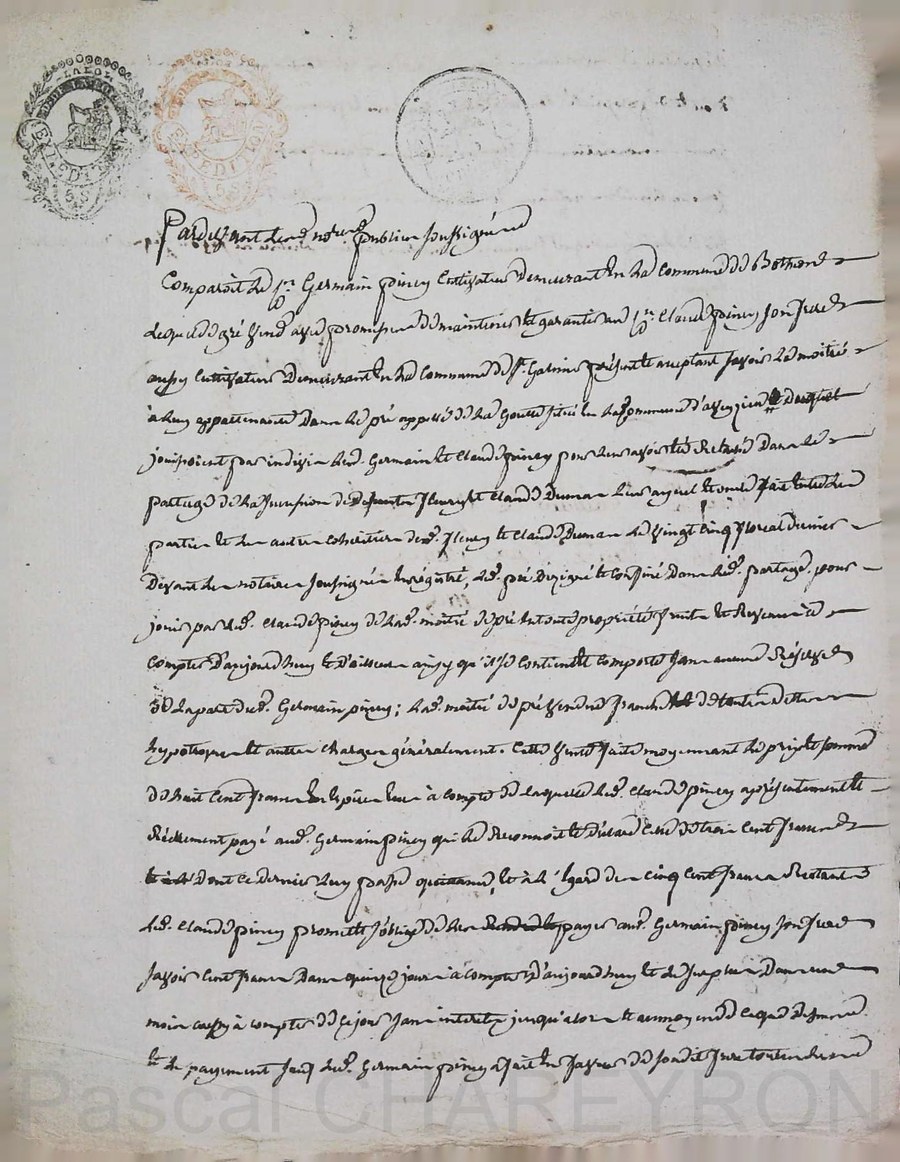 EXPEDITION
5 S
EXPEDITION
5 S
Pardevant les not.res publics soussignés
Comparoit le s.r Germain piney Cultivateur Demeurant en la Commune de Botheon
Lequel de gré vend avec promesse de maintenir et garantir au s.r Claude piney son frere
aussy Cultivateur Demeurant en la Commune de S.t Galmier présent et aceptant savoir la moitié
à luy appartenante Dans le pré appellé de la Goutte situé en la Commune d'aveyzieu Duquel
jouissoient par indivis lesd. Germain et Claude piney pour leur avoir été Relaché Dans le
partage de la succession de Defunts fleury et Claude Dumas leurs ayeul et oncle fait entre les
parties et les autres cohéritiers desd. fleury et Claude Dumas le vingt cinq floreal dernier
Devant les notaires soussignés Enrégistré, led. pré Dézigné et Confiné Dans led. partage, pour
jouir par led. Claude piney de lad. moitié de pré En toute propriété fruits et Revenus à
Compter D'aujourd'huy et D'ailleurs ainsy qu'il se Contient et Comporte sans aucune Réserve
de la part dud. Germain piney; lad. moitié de pré vendue franche de toutes dettes
hypotheques et autres charges généralement. Cette vente faite moyennant le prix et somme
de huit Cent francs En Espèces à compte de laquelle led. Claude piney a présentement et
Réellement payé aud. Germain piney qui le Reconnoit et Déclare Celle de trois Cent francs
Dont ce dernier luy passe quittance, et à l'égard des cinq cent francs Restants
led. Claude piney promet et s'oblige de les payer aud. Germain piney son frere
savoir Cent francs Dans quinze jours à compter D'aujourd'huy et le surplus Dans
mois aussy à compter de ce jour sans interets jusqu'alors et au moyen de ce que Dessus
et le payement led. Germain piney a fait En faveur de son dit frere toutes
Pascal CHAREYRON